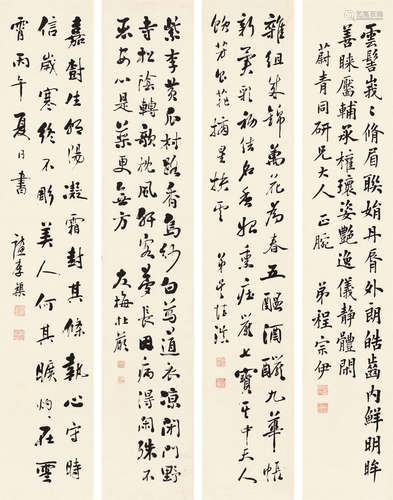 雲髻峩峩脩眉聯娟丹脣外朗皓齒內鮮明眸
善睞靨輔承權瓌姿艷逸儀靜體閒
蔚青同研兄大人正腕 弟程宗伊
雜組成錦萬花為春五醞酒釅九華帳
新異彩初結名香始熏莊嚴七寶其中天人
飲芳食菲摘星抉雲 弟
紫李黃瓜村路香烏紗白葛道衣涼閉門野
寺松陰轉欹枕風軒客夢長因病得閒殊不
惡安心是藥更無方
嘉樹生朝陽凝霜封其條執心守時
信歲寒終不彫美人何其曠灼灼在雲
霄丙午夏日書